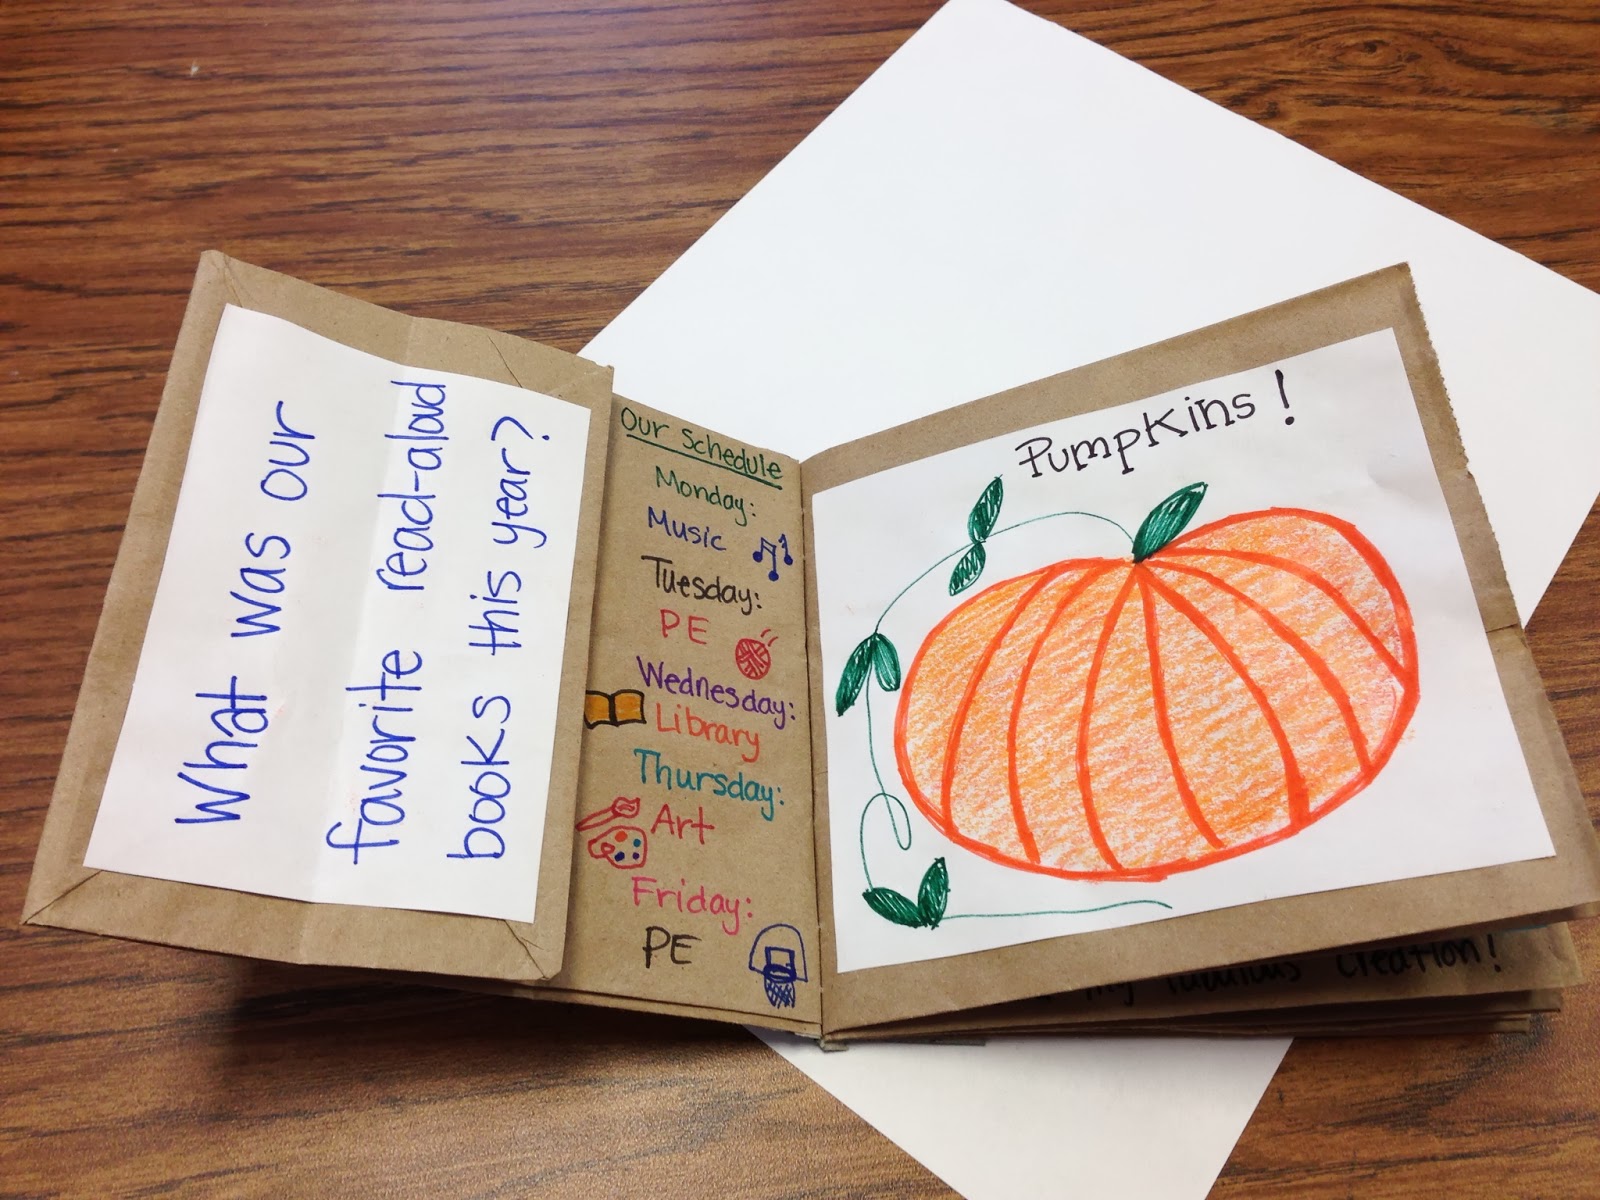 What was our
favorite read-aloud
books this year?
Our Schedule
Monday:
Music
Tuesday:
PE
Wednesday:
Library
Thursday:
Art
Friday:
PE
Pumpkins!
my fabulous creation!